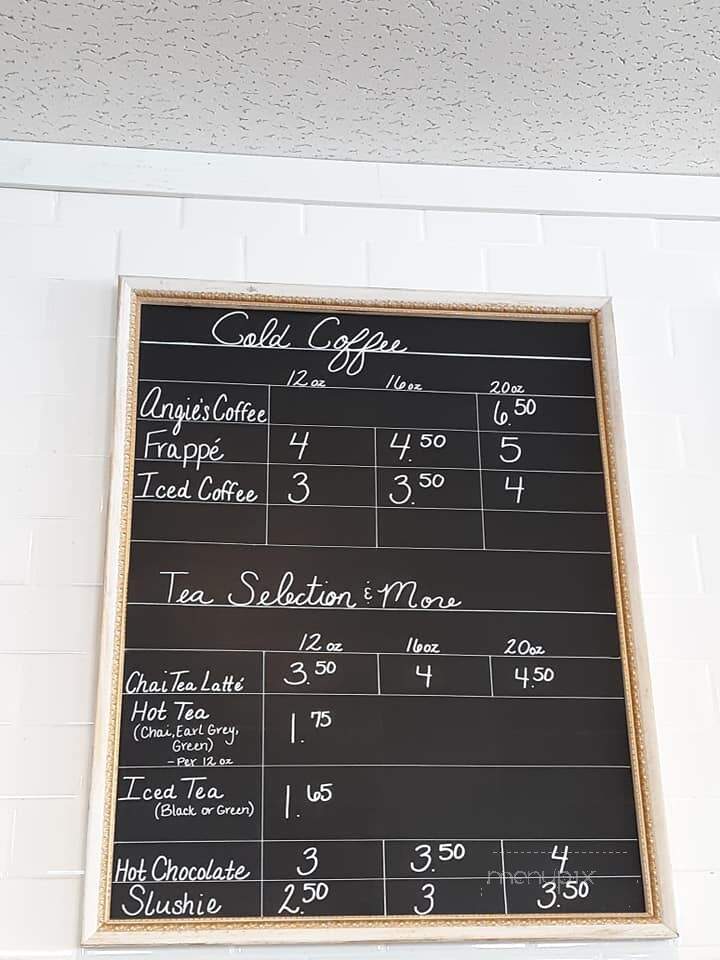 Cold Coffee
12 oz 16 oz 20 oz
Angie's Coffee 6.50
Frappé 4 4.50 5
Iced Coffee 3 3.50 4
Tea Selection & More
12 oz 16oz 20oz
Chai Tea Latté 3.50 4 4.50
Hot Tea 1.75
(Chai, Earl Grey,
Green)
- Per 12 oz
Iced Tea 1.65
(Black or Green)
Hot Chocolate 3 3.50 4
menupix
Slushie 2.50 3 3.50